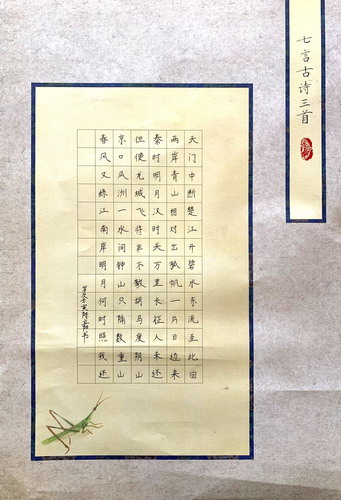 七言古诗三首
天门中断楚江开碧水东流至北回
两岸青山相对出孤帆一片日边来
秦时明月汉时关万里长征人未还
但使龙城飞将在不教胡马度阴山
京口瓜洲一水间钟山只隔数重山
春风又绿江南岸明月何时照我还